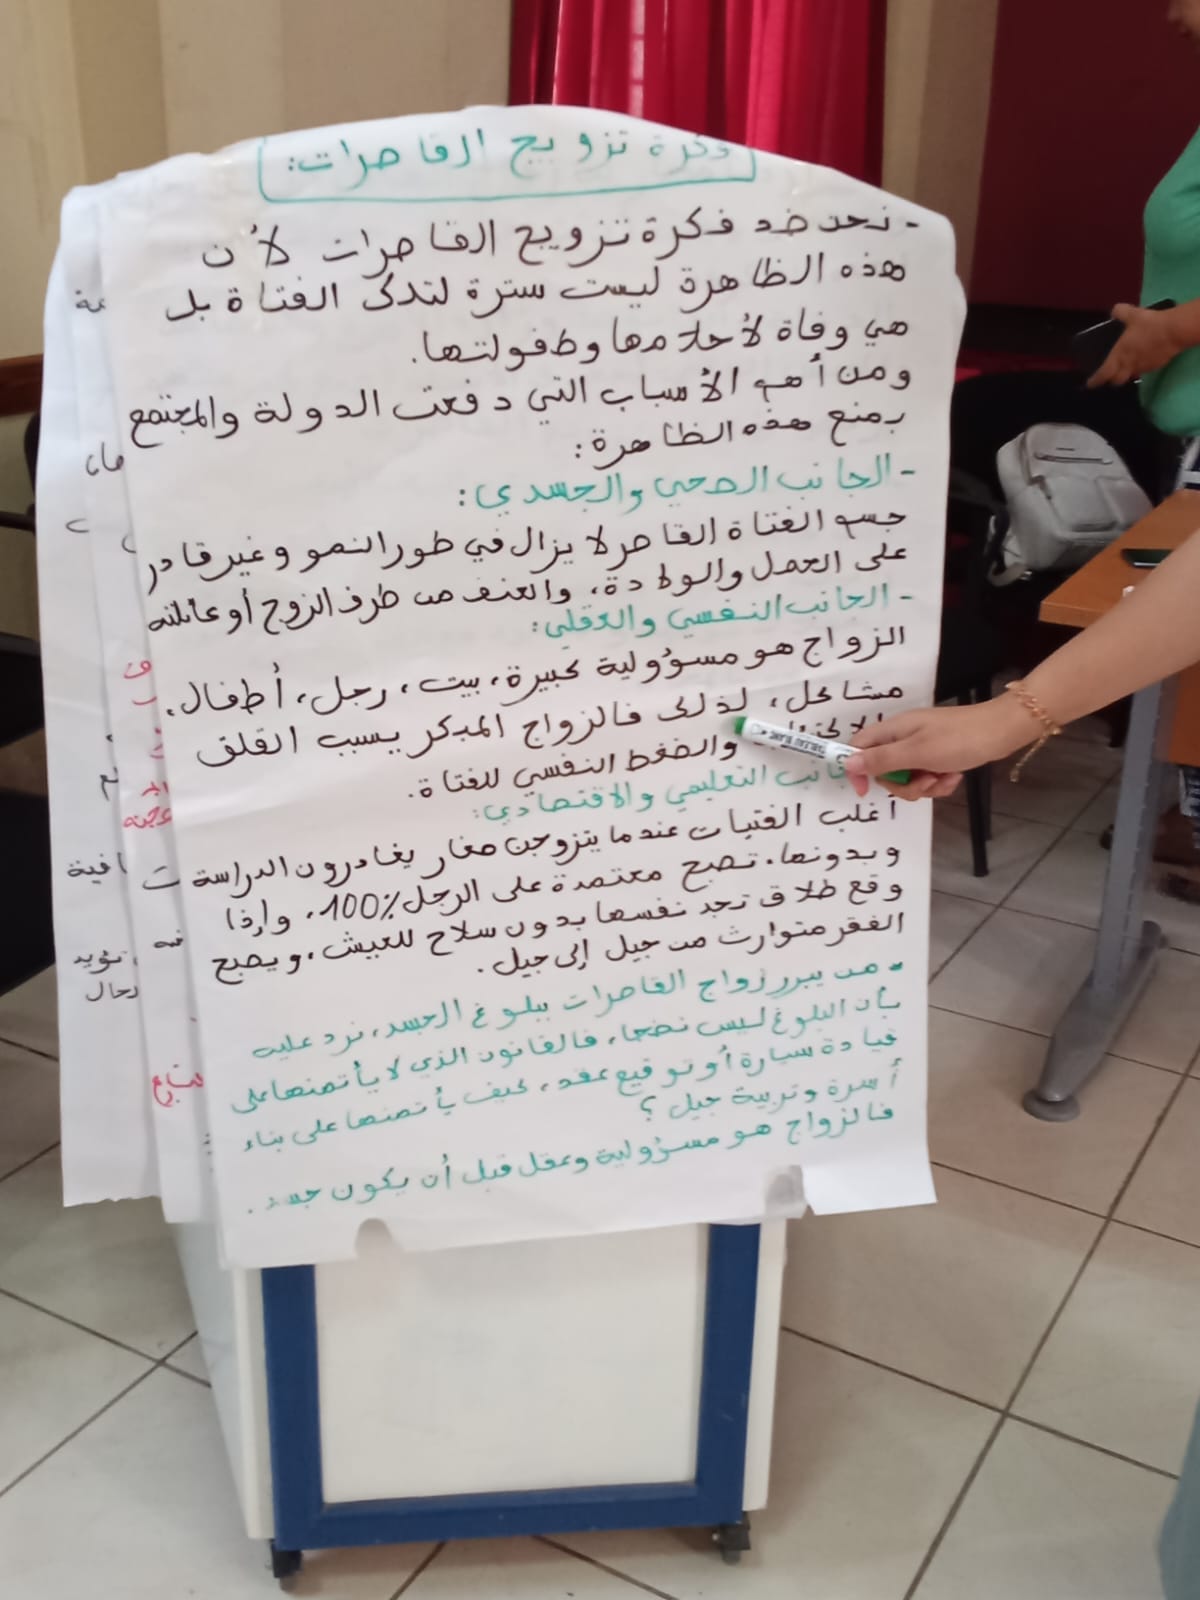 فكرة تزويج القاصرات:
- نحن ضد فكرة تزويج القاصرات لأن
هذه الظاهرة ليست سترة لتلك الفتاة بل
هي وفاة لأحلامها وطفولتها.
ومن أهم الأسباب التي دفعت الدولة والمجتمع
بمنع هذه الظاهرة:
- الجانب الصحي والجسدي:
جسم الفتاة القاصر لا يزال في طور النمو وغير قادر
على الحمل والولادة، والعنف من طرف الزوج أو عائلته
- الجانب النفسي والعقلي:
الزواج هو مسؤولية كبيرة، بيت، رجل، أطفال.
مشاكل، لذلك فالزواج المبكر يسبب القلق
والضغط النفسي للفتاة.
التعليمي والاقتصادي:
أغلب الفتيات عندما يتزوجن صغار يغادرون الدراسة
وبدونها. تصبح معتمدة على الرجل 100%، وإذا
وقع طلاق تجد نفسها بدون سلاح للعيش، ويصبح
الفقر متوارث من جيل إلى جيل.
- من يبرر زواج القاصرات ببلوغ الجسد، نرد عليه
بأن البلوغ ليس نضجا، فالقانون الذي لا يأتمنها على
قيادة سيارة أو توقيع عقد، كيف يأتمنها على بناء
أسرة وتربية جيل؟
فالزواج هو مسؤولية وعقل قبل أن يكون جسد.